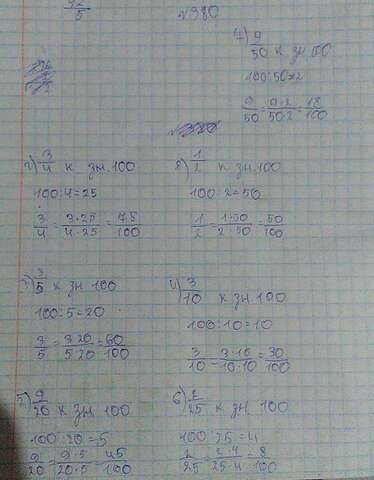 №980
7) 9/50 к зн 100
100:50=2
9/50=9·2/50·2=18/100
3/4 к зн. 100
100:4=25
3/4=3·25/4·25=75/100
1/2 к зн. 100
100:2=50
1/2=1·50/2·50=50/100
3) 3/5 к зн 100
100:5=20
3/5=3·20/5·20=60/100
4) 3/10 к зн 100
100:10=10
3/10=3·10/10·10=30/100
5) 9/20 к зн 100
100:20=5
9/20=9·5/20·5=45/100
6) 2/25 к зн. 100
100:25=4
2/25=2·4/25·4=8/100